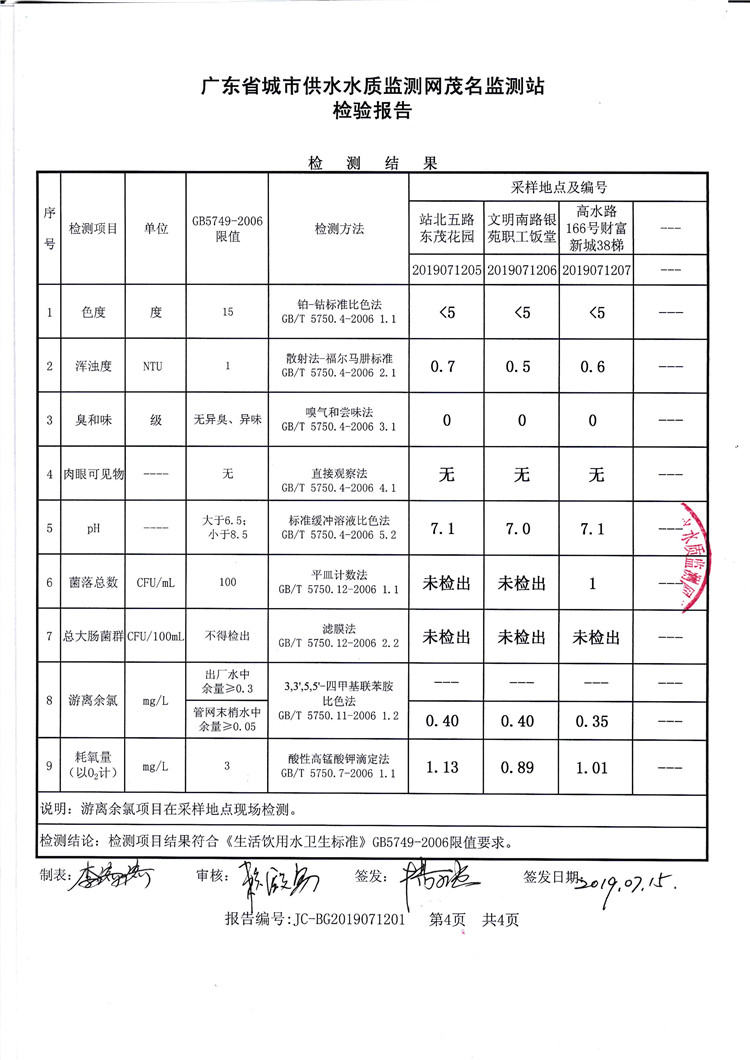 广东省城市供水水质监测网茂名监测站
检验报告
检 测 结 果
序号 检测项目 单位 GB5749-2006限值 检测方法 采样地点及编号
站北五路东茂花园 文明南路银苑职工饭堂 高水路166号财富新城38梯 ---
2019071205 2019071206 2019071207 ---
1 色度 度 15 铂-钴标准比色法 GB/T 5750.4-2006 1.1 <5 <5 <5 ---
2 浑浊度 NTU 1 散射法-福尔马肼标准 GB/T 5750.4-2006 2.1 0.7 0.5 0.6 ---
3 臭和味 级 无异臭、异味 嗅气和尝味法 GB/T 5750.4-2006 3.1 0 0 0 ---
4 肉眼可见物 ---- 无 直接观察法 GB/T 5750.4-2006 4.1 无 无 无 ---
5 pH ---- 大于6.5；小于8.5 标准缓冲溶液比色法 GB/T 5750.4-2006 5.2 7.1 7.0 7.1 ---
6 菌落总数 CFU/mL 100 平皿计数法 GB/T 5750.12-2006 1.1 未检出 未检出 1 ---
7 总大肠菌群 CFU/100mL 不得检出 滤膜法 GB/T 5750.12-2006 2.2 未检出 未检出 未检出 ---
8 游离余氯 mg/L 出厂水中余量≥0.3 3,3',5,5'-四甲基联苯胺比色法 GB/T 5750.11-2006 1.2 --- --- --- ---
管网末梢水中余量≥0.05 0.40 0.40 0.35 ---
9 耗氧量（以O₂计） mg/L 3 酸性高锰酸钾滴定法 GB/T 5750.7-2006 1.1 1.13 0.89 1.01 ---
说明：游离余氯项目在采样地点现场检测。
检测结论：检测项目结果符合《生活饮用水卫生标准》GB5749-2006限值要求。
制表： 审核： 签发： 签发日期 2019.07.15.
报告编号:JC-BG2019071201 第4页 共4页
水质监测